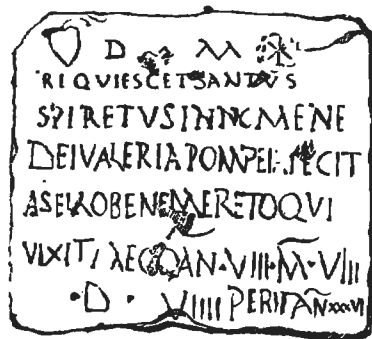 D M
RIQVIESCET SANTVS
SPIRETVS IN NCMENE
DEI VALERIA POMPEI FECIT
ASELLO BENEMERETO QVI
VIXIT AN·VIII·M·VIII
·D· VIIII PERIT AN XXXVI